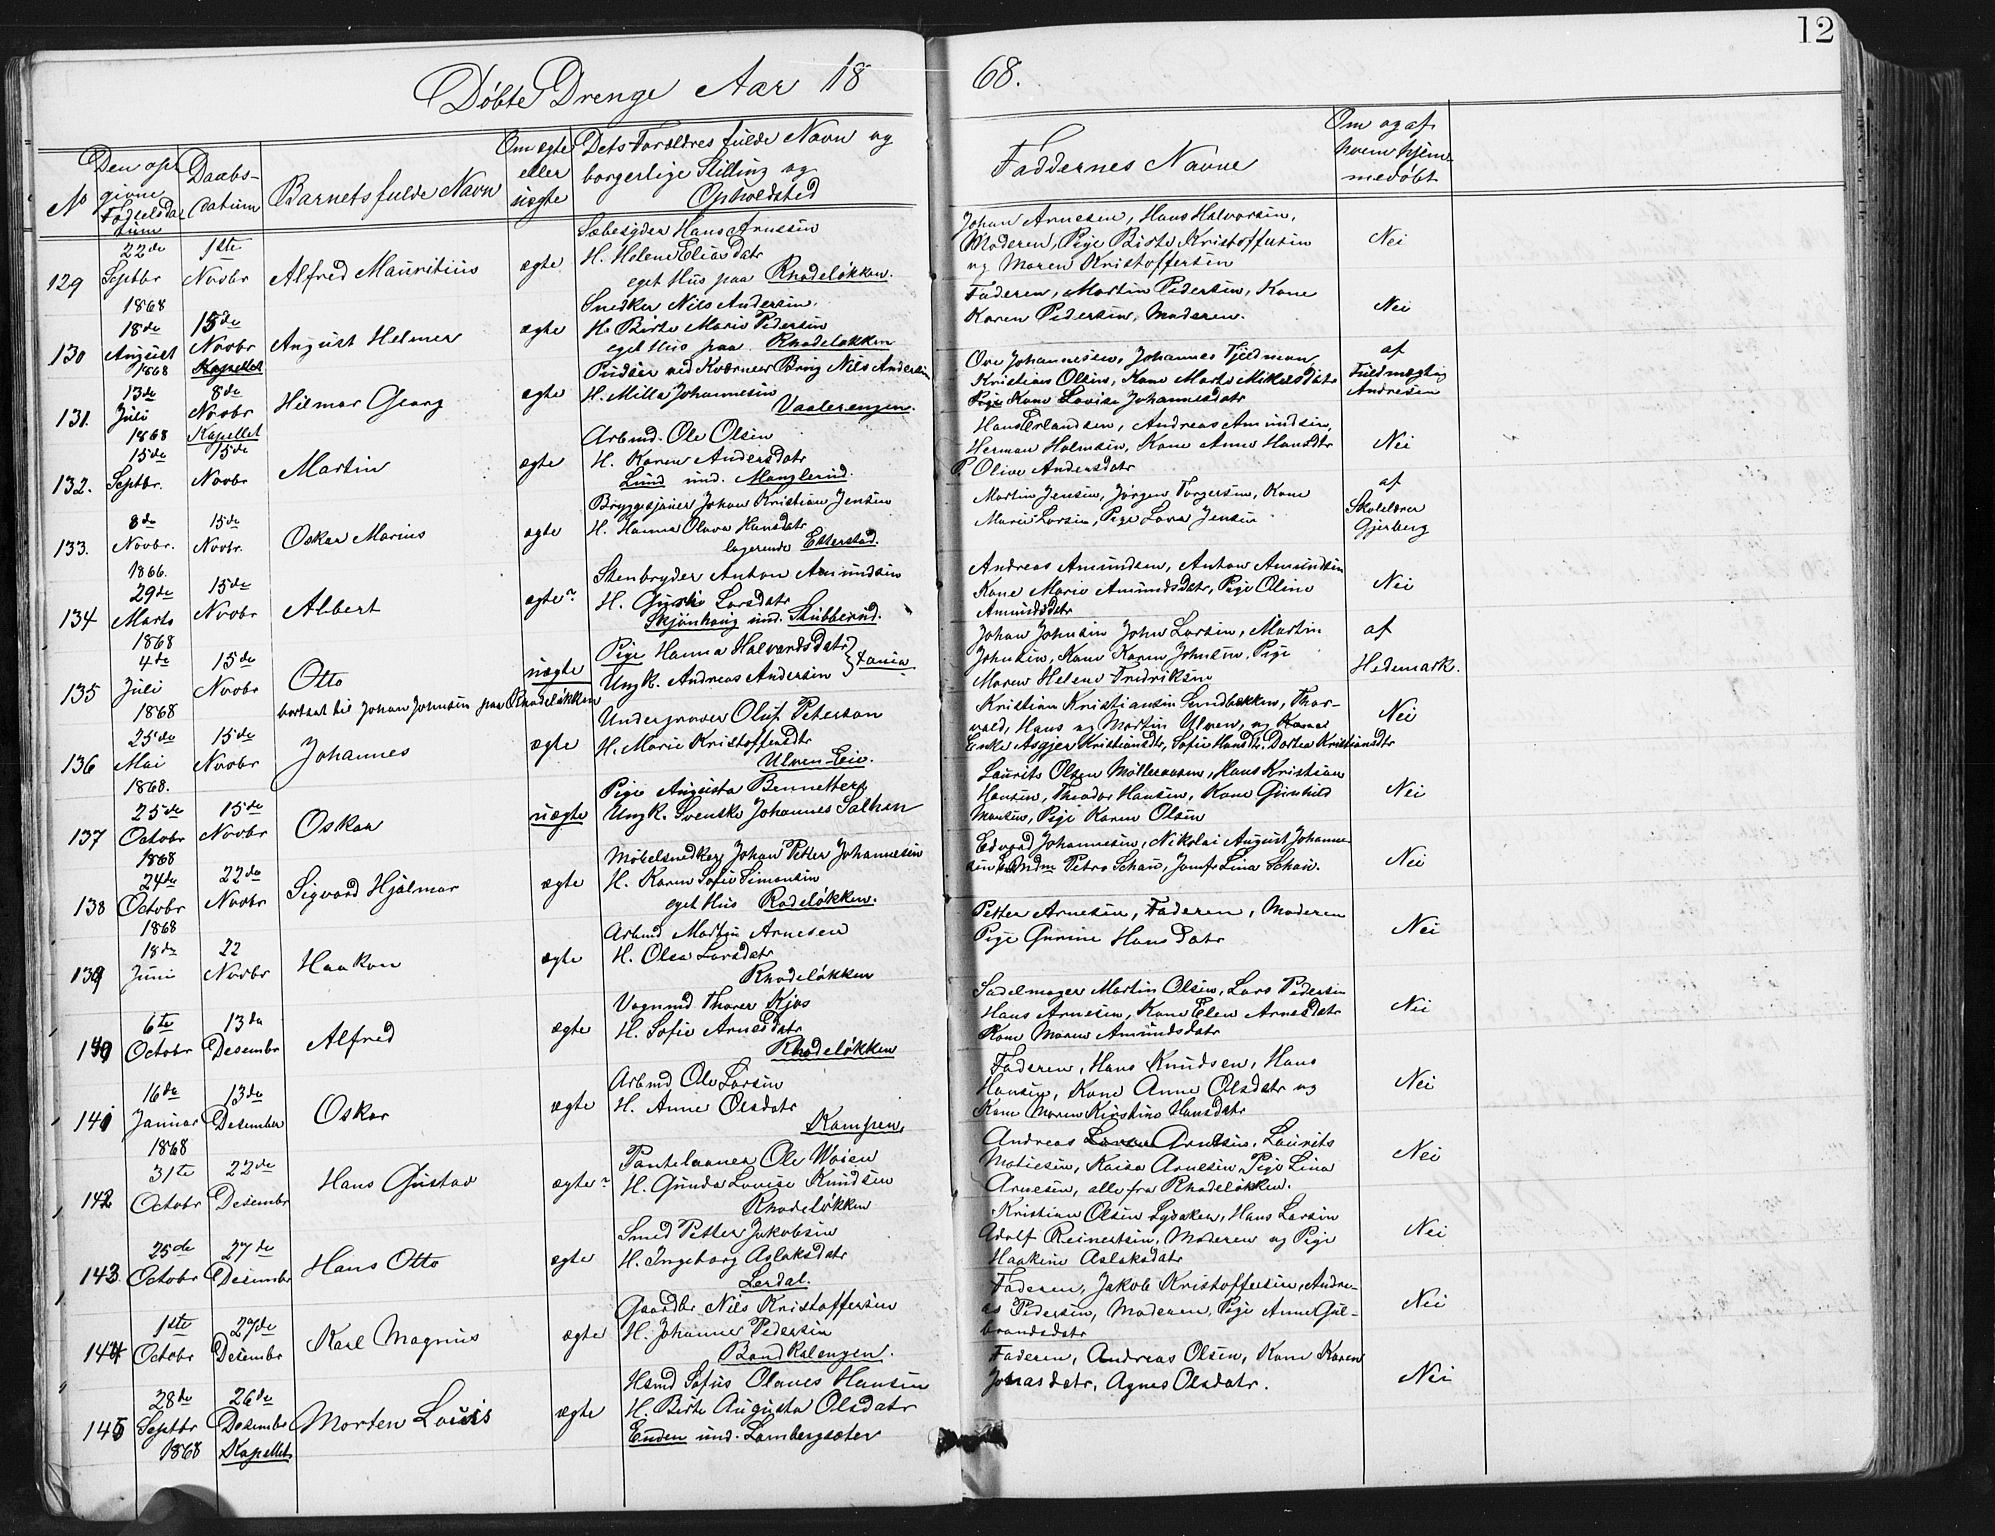 12
Döbte Drenge Aar 1868.
No
Den op-
givne
Födselsda-
tum
Daabs-
datum
Barnets fulde Navn
Om ægte
eller
uægte
Dets Forældres fulde Navn og
borgerlige Stilling og
Opholdsted
Faddernes Navne
Om og af
hvem hjem-
medøbt
129
22de
Septbr
1868
1ste
Novbr
Alfred Mauritius
ægte
Hans Arnesen
H. Helene Eliasdatr
eget Hus paa Rhodeløkken.
Johan Arnesen, Hans Halvorsen,
Moderen, Pige Birte Kristoffersen
og Maren Kristoffersen
Nei
130
18de
August
1868
15de
Novbr
Kapellet
August Helmer
ægte
Snedker Nils Andersen.
H. Birte Marie Pedersen
eget Hus paa Rhodeløkken
Faderen, Martin Pedersen, Kone
Karen Pedersen, Moderen.
Nei
131.
13de
Juli
1868
8de
Novbr
Kapellet
Hilmar Georg
ægte
Pudser ved Kværner Brug Nils Andersen
H. Milla Johannesen
Vaalerengen.
Ove Johannessen, Johannes Fjeldman,
Kristian Olsen, Kone Marte Mikkelsdatr
Pige Kone Lovise Johannesdatr
af
Fuldmægtig
Andresen
132.
15de
Septbr.
15de
Novbr
Martin
ægte
Arbmd. Ole Olsen
H. Karen Andersdatr
Lund und. Manglerud.
Hans Erlandsen, Andreas Amundsen,
Herman Holmsen, Kone Anne Hansdtr
P. Olive Andersdatr
Nei
133.
8de
Novbr.
1866.
15de
Novbr.
Oskar Marius
ægte
Bryggesjauer Johan Kristian Jensen
H. Hanna Olava Hansdatr
logerende Etterstad.
Martin Jensen, Jørgen Torgersen, Kone
Marie Larsen, Pige Lava Jensen
af
Skolelærer
Gjerberg
134
29de
Marts
1868
15de
Novbr
Albert
ægte
Stenbryder Anton Amundsen
H. Gurie Larsdatr
Skjønhaug und. Stubberud.
Andreas Amundsen, Anton Amundsen
Kone Marie Amundsdatr, Pige Oline
Amundsdatr
Nei
135
4de
Juli
1868
15de
Novbr
Otto
bortsat til Johan Johnsen paa Rhodeløkken
uægte
Pige Hanna Halvorsdatr
Ungk. Andreas Andersen
Johan Johnsen John Larsen, Martin
Johnsen, Kone Karen Johnsen, Pige
Maren Helene Fredriksen
af
Hedemark.
136
25de
Mai
1868.
15de
Novbr
Johannes
ægte
Undergraver Oluf Peterson
H. Marie Kristoffersdtr
Ulven-Eie.
Kristian Kristiansen Lundbækken, Thor-
vald, Hans og Martin Ulven, og
Enke Asgjer Kristiansdtr, Sofie Hansdtr. Dortea Kristiansdtr
Nei
137
25de
Octobr
1868
15de
Novbr
Oskar
uægte
Pige Augusta Bennetters
Ungk. Svenske Johannes Salman
Laurits Olsen Møllerausen, Hans Kristian
Hansen, Theodor Hansen, Kone Gunhild
Monsen, Pige Karen Olsen
Nei
138
24de
Octobr
1868
22de
Novbr
Sigvard Hjalmar
ægte
Møbelsnedker Johan Petter Johannesen
H. Karen Sofie Simonsen
eget Hus Rodeløkken.
Edvard Johannesen, Nikolai August Johanne-
sen Petra Schau, Jomfr Lina Schau.
Nei
139
18de
Juni
22
Novbr
Haakon
ægte
Arbmd Martin Arnesen
H. Olea Larsdatr
Rhodeløkken
Petter Arnesen, Faderen, Moderen
Pige Gurine Hansdatr
Nei
140
6te
Octobr
13de
Desembr
Alfred
ægte
Vognmd Thorer Kjos
H. Sofie Arnesdatr
Rhodeløkken
Sadelmager Martin Olsen, Lars Pedersen
Hans Arnesen, Kone Elen Arnesdatr
Kone Maren Amundsdatr
Nei
141
16de
Januar
1868
13de
Desember
Oskar
ægte
Arbmd Ole Larsen
H. Anne Olsdatr
Kampen.
Faderen, Hans Knudsen, Hans
Hansen, Kone Anne Olsdatr og
Kone Maren Kirstine Hansdatr
Nei
142
31te
Octobr
22de
Desembr
Hans Gustav
ægte
Pantelaaner Ole Moien
H. Gunda Lovise Knudsen
Rhodeløkken
Andreas Arnesen, Laurits
Matiesen, Kaisa Arnesen, Pige Lina
Arnesen, alle fra Rhodeløkken.
Nei
143
25de
Octobr
27de
Desembr
Hans Otto
ægte
Smed Petter Jakobsen
H. Ingeborg Aslaksdatr
Lerdal.
Kristian Olsen Hans Larsen
Adolf Reinertsen, Moderen og Pige
Haakine Aslaksdatr
Nei
144
1ste
Octobr
27de
Desembr
Karl Magnus
ægte
Gaardbr Nils Kristoffersen
H. Johanne Pedersen
Bondkalengen.
Faderen, Jakob Kristoffersen, Andre-
as Pedersen, Moderen, Pige Anne Gul-
brandsdatr
Nei
145
28de
Septbr
1868
26de
Desembr
Kapellet
Morten Louis
ægte
Hsmd Sofus Olaves Hansen
H. Birte Augusta Olsdatr
Enden und. Lambergsæter
Faderen, Andreas Olsen, Kone Karen
Jonasdatr, Agnes Olsdatr.
Nei